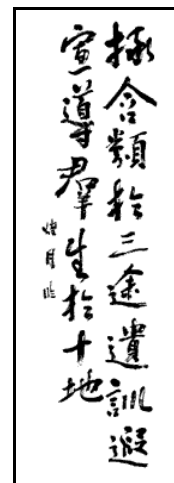 拯含類於三途遺訓遐
宣導羣生於十地